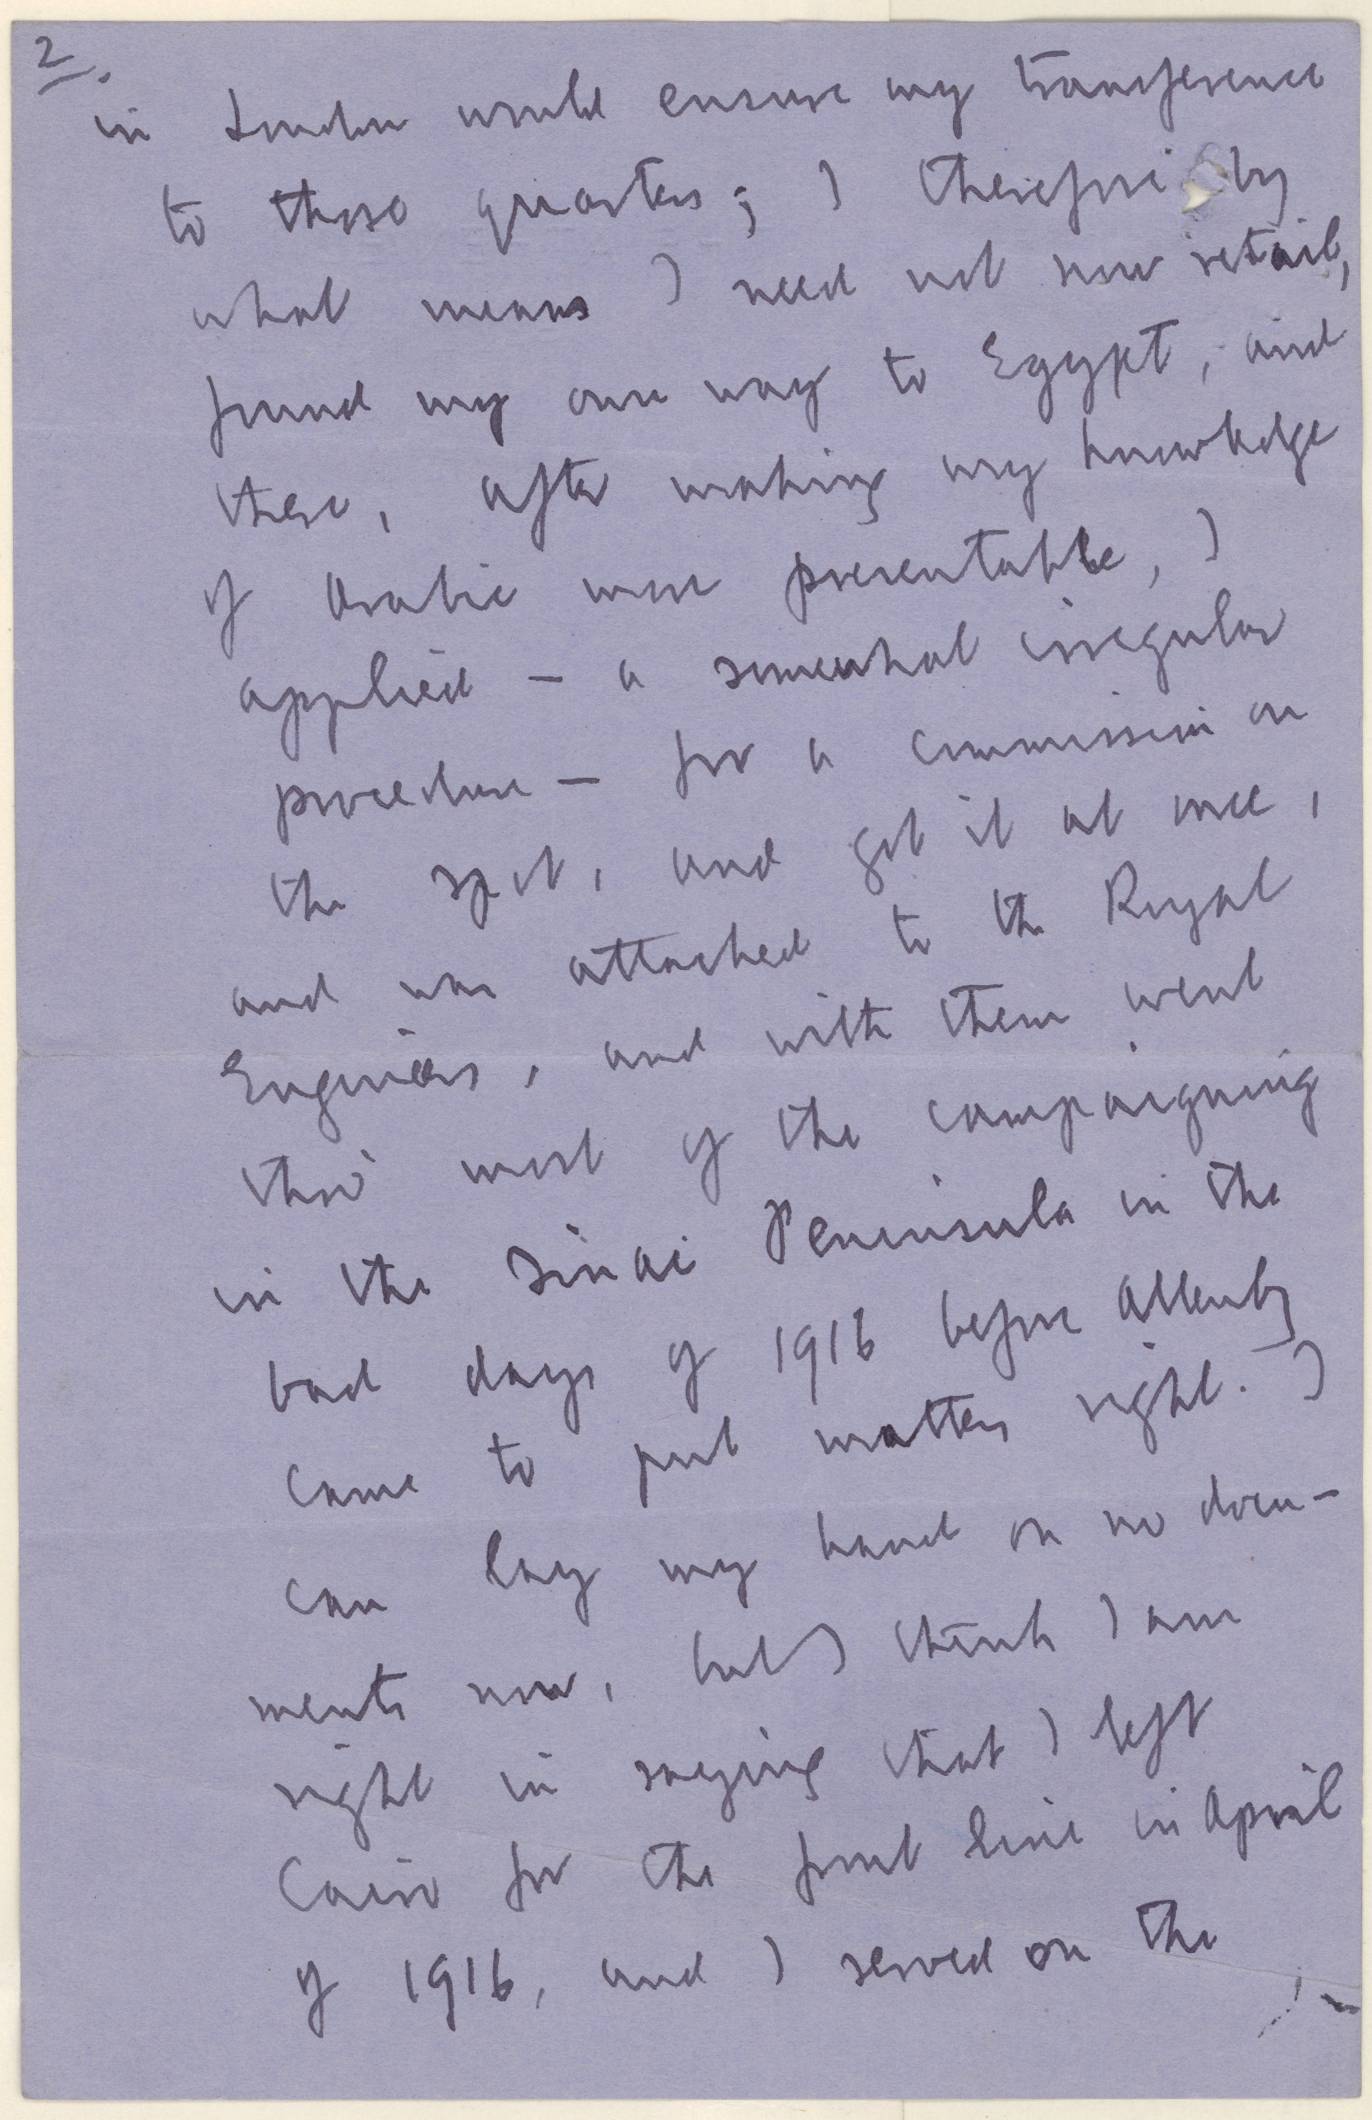 2.
in London would ensure my transference
to those quarters; I therefore by
what means I need not now retail,
found my own way to Egypt, and
there, after making my knowledge
of Arabic more presentable, I
applied – a somewhat irregular
procedure – for a commission on
the spot, and got it at once,
and was attached to the Royal
Engineers, and with them went
thro' most of the campaigning
in the Sinai Peninsula in the
bad days of 1916 before Allenby
came to put matters right. I
can lay my hand on no docu-
ments now, but I think I am
right in saying that I left
Cairo for the front line in April
of 1916, and I served on the